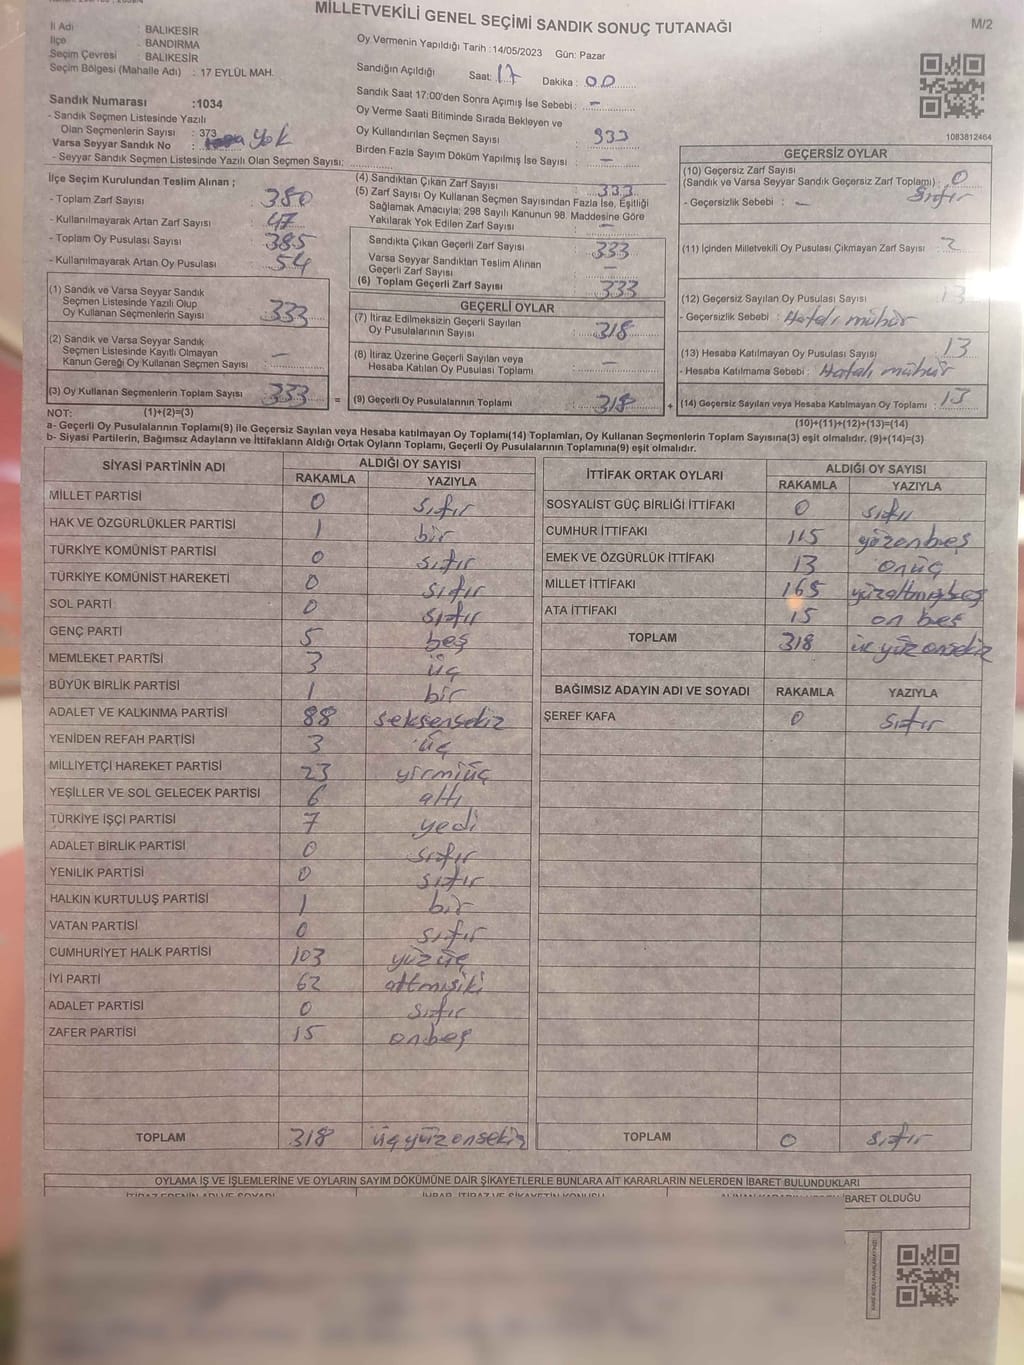 MİLLETVEKİLİ GENEL SEÇİMİ SANDIK SONUÇ TUTANAĞI
M/2
İl Adı : BALIKESİR
İlçe : BANDIRMA
Seçim Çevresi : BALIKESİR
Seçim Bölgesi (Mahalle Adı) : 17 EYLÜL MAH.
Sandık Numarası :1034
- Sandık Seçmen Listesinde Yazılı
Olan Seçmenlerin Sayısı : 373
Varsa Seyyar Sandık No : yok
- Seyyar Sandık Seçmen Listesinde Yazılı Olan Seçmen Sayısı:
Oy Vermenin Yapıldığı Tarih : 14/05/2023 Gün: Pazar
Sandığın Açıldığı Saat: 17 Dakika : 00
Sandık Saat 17:00'den Sonra Açımış İse Sebebi : -
Oy Verme Saati Bitiminde Sırada Bekleyen ve
Oy Kullandırılan Seçmen Sayısı : 333
Birden Fazla Sayım Döküm Yapılmış İse Sayısı : -
1083812464
İlçe Seçim Kurulundan Teslim Alınan ;
- Toplam Zarf Sayısı : 380
- Kullanılmayarak Artan Zarf Sayısı : 47
- Toplam Oy Pusulası Sayısı : 385
- Kullanılmayarak Artan Oy Pusulası : 54
(1) Sandık ve Varsa Seyyar Sandık
Seçmen Listesinde Yazılı Olup
Oy Kullanan Seçmenlerin Sayısı : 333
(2) Sandık ve Varsa Seyyar Sandık
Seçmen Listesinde Kayıtlı Olmayan
Kanun Gereği Oy Kullanan Seçmen Sayısı : -
(3) Oy Kullanan Seçmenlerin Toplam Sayısı : 333 =
(4) Sandıktan Çıkan Zarf Sayısı : 333
(5) Zarf Sayısı Oy Kullanan Seçmen Sayısından Fazla İse, Eşitliği
Sağlamak Amacıyla; 298 Sayılı Kanunun 98. Maddesine Göre
Yakılarak Yok Edilen Zarf Sayısı : -
Sandıkta Çıkan Geçerli Zarf Sayısı : 333
Varsa Seyyar Sandıktan Teslim Alınan
Geçerli Zarf Sayısı : -
(6) Toplam Geçerli Zarf Sayısı : 333
GEÇERLİ OYLAR
(7) İtiraz Edilmeksizin Geçerli Sayılan
Oy Pusulalarının Sayısı : 318
(8) İtiraz Üzerine Geçerli Sayılan veya
Hesaba Katılan Oy Pusulası Toplamı : -
(9) Geçerli Oy Pusulalarının Toplamı : 318 +
GEÇERSİZ OYLAR
(10) Geçersiz Zarf Sayısı
(Sandık ve Varsa Seyyar Sandık Geçersiz Zarf Toplamı) : 0
sıfır
- Geçersizlik Sebebi : -
(11) İçinden Milletvekili Oy Pusulası Çıkmayan Zarf Sayısı : 2
(12) Geçersiz Sayılan Oy Pusulası Sayısı : 13
- Geçersizlik Sebebi : Hatalı mühür
(13) Hesaba Katılmayan Oy Pusulası Sayısı : 13
- Hesaba Katılmama Sebebi : Hatalı mühür
(14) Geçersiz Sayılan veya Hesaba Katılmayan Oy Toplamı : 13
NOT: (1)+(2)=(3)
(10)+(11)+(12)+(13)=(14)
a- Geçerli Oy Pusulalarının Toplamı(9) ile Geçersiz Sayılan veya Hesaba katılmayan Oy Toplamı(14) Toplamları, Oy Kullanan Seçmenlerin Toplam Sayısına(3) eşit olmalıdır. (9)+(14)=(3)
b- Siyasi Partilerin, Bağımsız Adayların ve İttifakların Aldığı Ortak Oyların Toplamı, Geçerli Oy Pusulalarının Toplamına(9) eşit olmalıdır.
SİYASİ PARTİNİN ADI ALDIĞI OY SAYISI
RAKAMLA YAZIYLA
MİLLET PARTİSİ 0 sıfır
HAK VE ÖZGÜRLÜKLER PARTİSİ 1 bir
TÜRKİYE KOMÜNİST PARTİSİ 0 sıfır
TÜRKİYE KOMÜNİST HAREKETİ 0 sıfır
SOL PARTİ 0 sıfır
GENÇ PARTİ 5 beş
MEMLEKET PARTİSİ 3 üç
BÜYÜK BİRLİK PARTİSİ 1 bir
ADALET VE KALKINMA PARTİSİ 88 seksensekiz
YENİDEN REFAH PARTİSİ 3 üç
MİLLİYETÇİ HAREKET PARTİSİ 23 yirmiüç
YEŞİLLER VE SOL GELECEK PARTİSİ 6 altı
TÜRKİYE İŞÇİ PARTİSİ 7 yedi
ADALET BİRLİK PARTİSİ 0 sıfır
YENİLİK PARTİSİ 0 sıfır
HALKIN KURTULUŞ PARTİSİ 1 bir
VATAN PARTİSİ 0 sıfır
CUMHURİYET HALK PARTİSİ 103 yüzüç
İYİ PARTİ 62 altmışiki
ADALET PARTİSİ 0 sıfır
ZAFER PARTİSİ 15 onbeş
TOPLAM 318 üçyüzonsekiz
İTTİFAK ORTAK OYLARI ALDIĞI OY SAYISI
RAKAMLA YAZIYLA
SOSYALİST GÜÇ BİRLİĞİ İTTİFAKI 0 sıfır
CUMHUR İTTİFAKI 115 yüzonbeş
EMEK VE ÖZGÜRLÜK İTTİFAKI 13 onüç
MİLLET İTTİFAKI 165 yüzaltmışbeş
ATA İTTİFAKI 15 on beş
TOPLAM 318 üçyüzonsekiz
BAĞIMSIZ ADAYIN ADI VE SOYADI RAKAMLA YAZIYLA
ŞEREF KAFA 0 sıfır
TOPLAM 0 sıfır
OYLAMA İŞ VE İŞLEMLERİNE VE OYLARIN SAYIM DÖKÜMÜNE DAİR ŞİKAYETLERLE BUNLARA AİT KARARLARIN NELERDEN İBARET BULUNDUKLARI
İBARET OLDUĞU